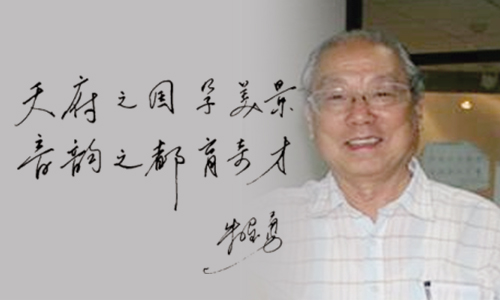 天府之国孕美景
音韵之都育奇才